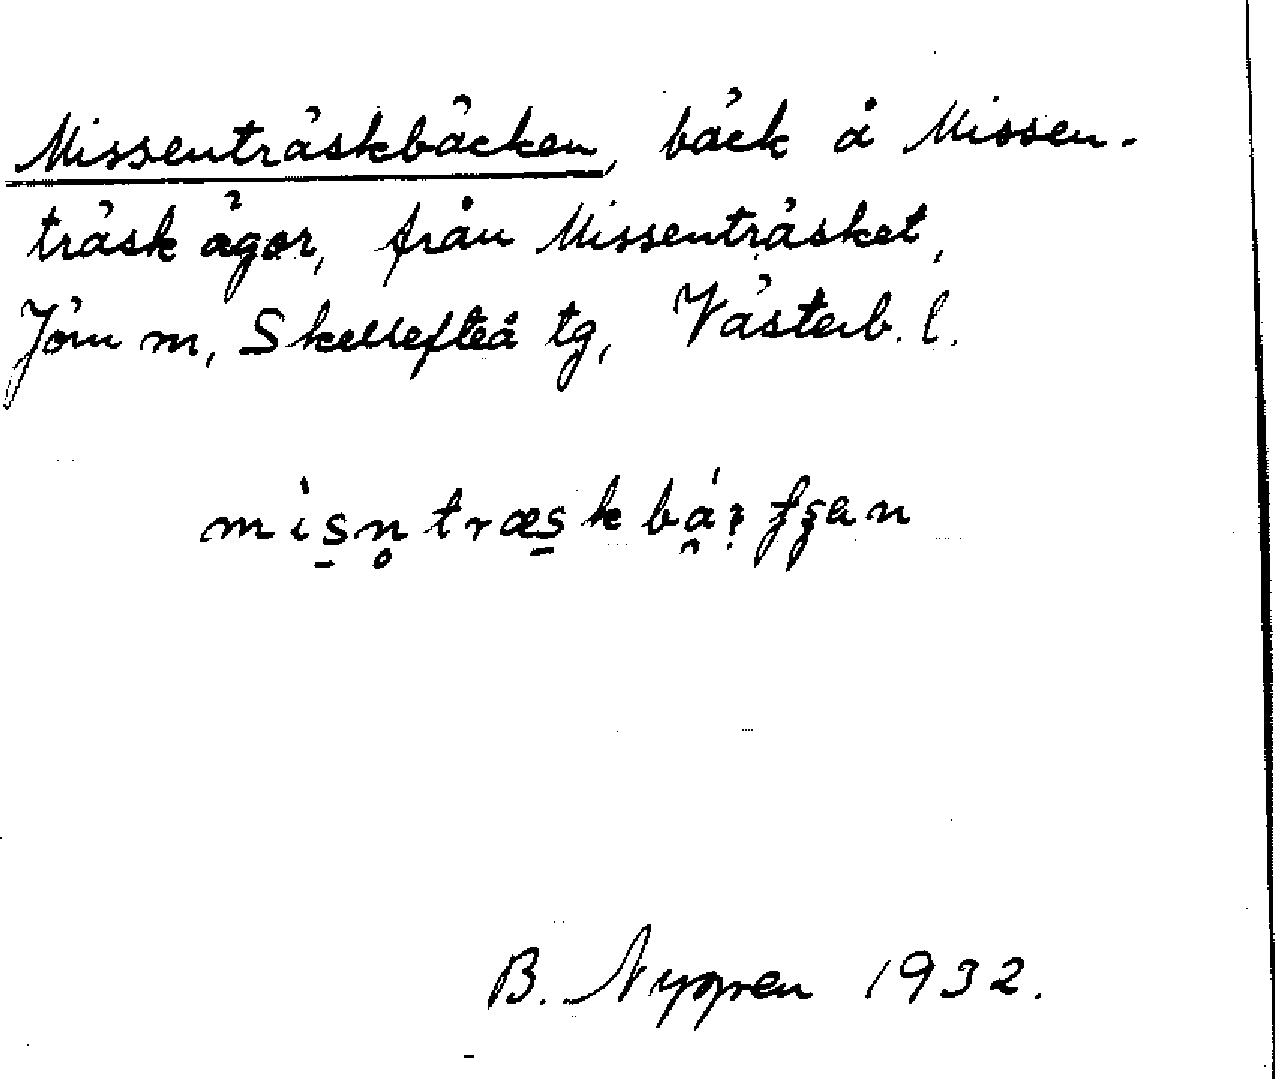 Missenträskbäcken, bäck å Missen-
träsk ägor, från Missenträsket,
Jörn m, Skellefteå tg, Västerb. l.
B. Nygren 1932.